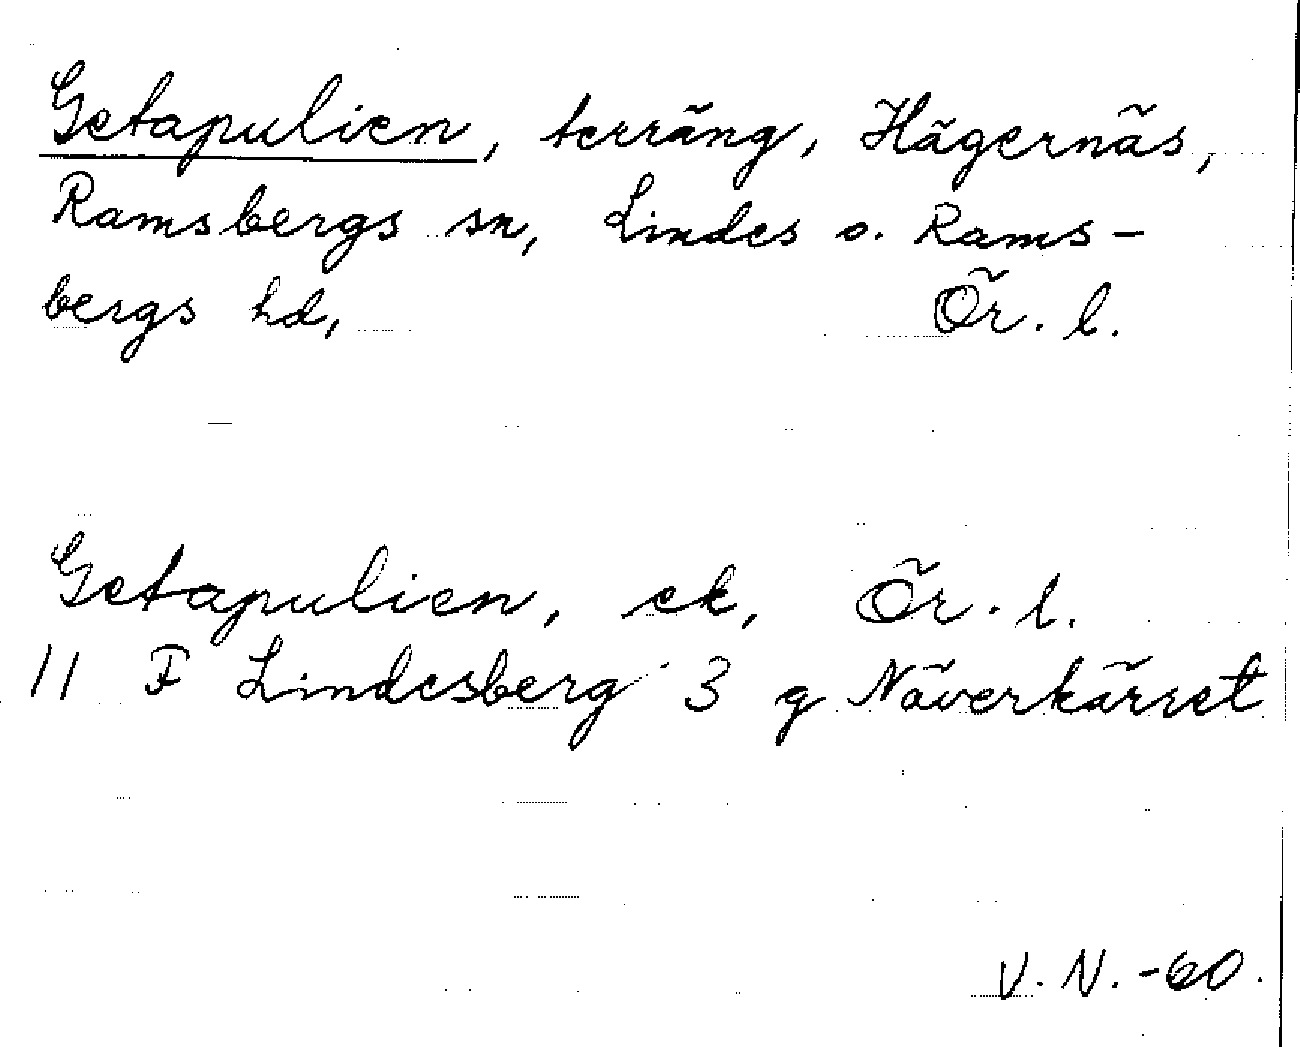 Getapulien, terräng, Hägernäs,
Ramsbergs sn, Lindes o. Rams-
bergs hd, Ör. l.
Getapulien, ek, Ör. l.
11 F Lindesberg 3 g Näverkärret
V. N. -60.